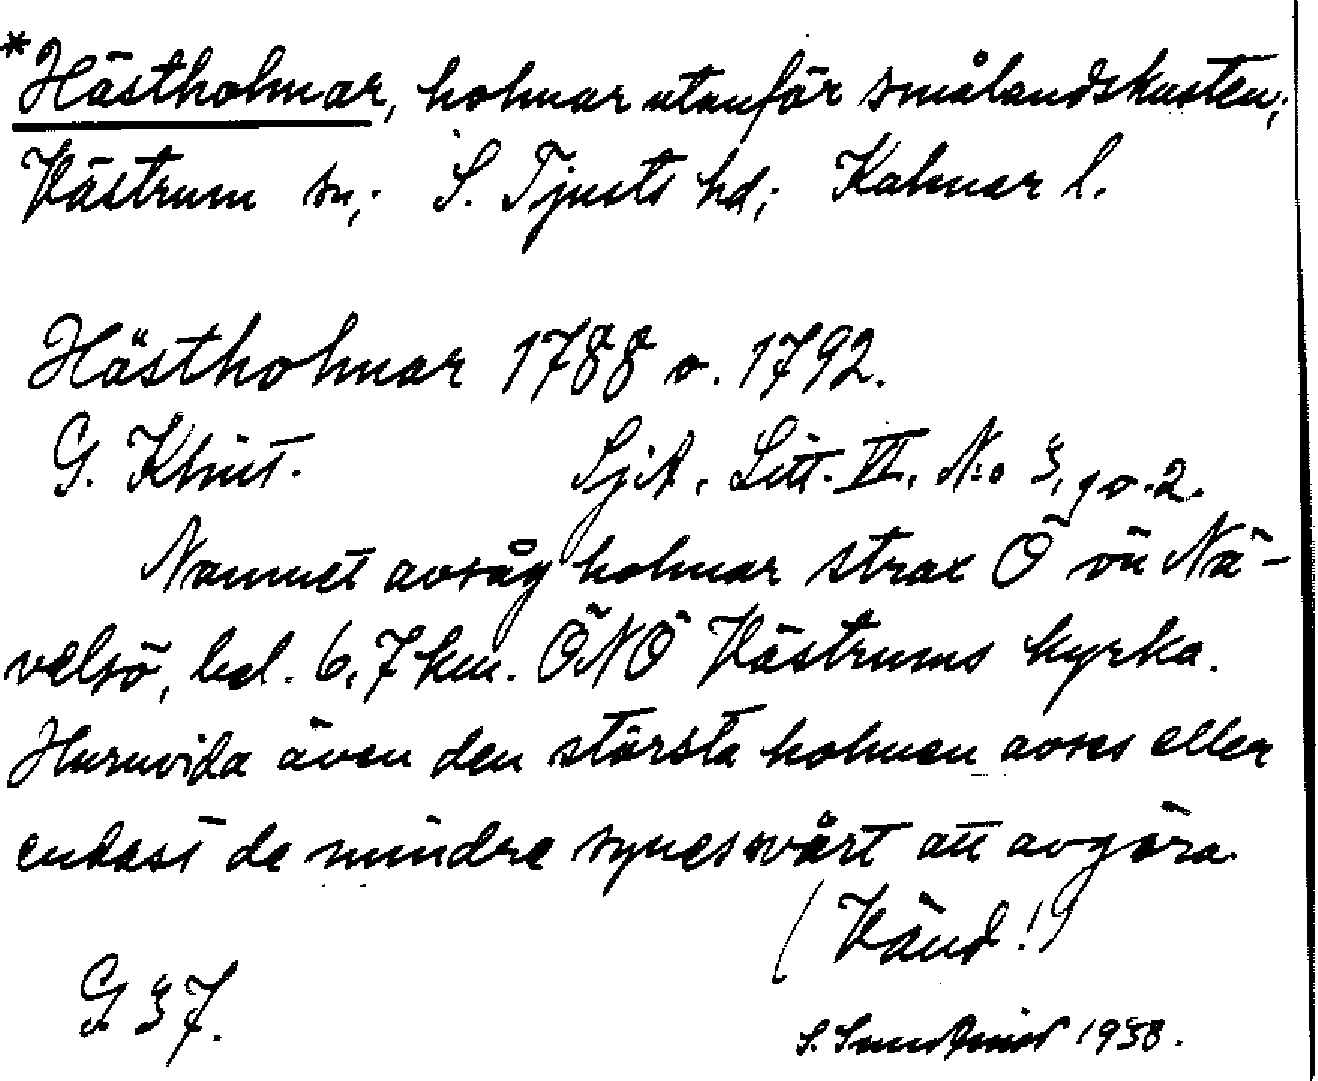 *Hästholmar, holmar utanför smålandskusten;
Västrum sn; S. Tjusts hd; Kalmar l.
Hästholmar 1788 o. 1792.
G. Klint. SjA. Litt. VI. N:o 3, 90.2.
Namnet avsåg holmar strax Ö om Nä-
velsö, bel. 6,7 km. ÖNÖ Västrums kyrka.
Huruvida även den största holmen avses eller
endast de mindre synes svårt att avgöra.
(Vänd!)
G 37.
S. 1938.